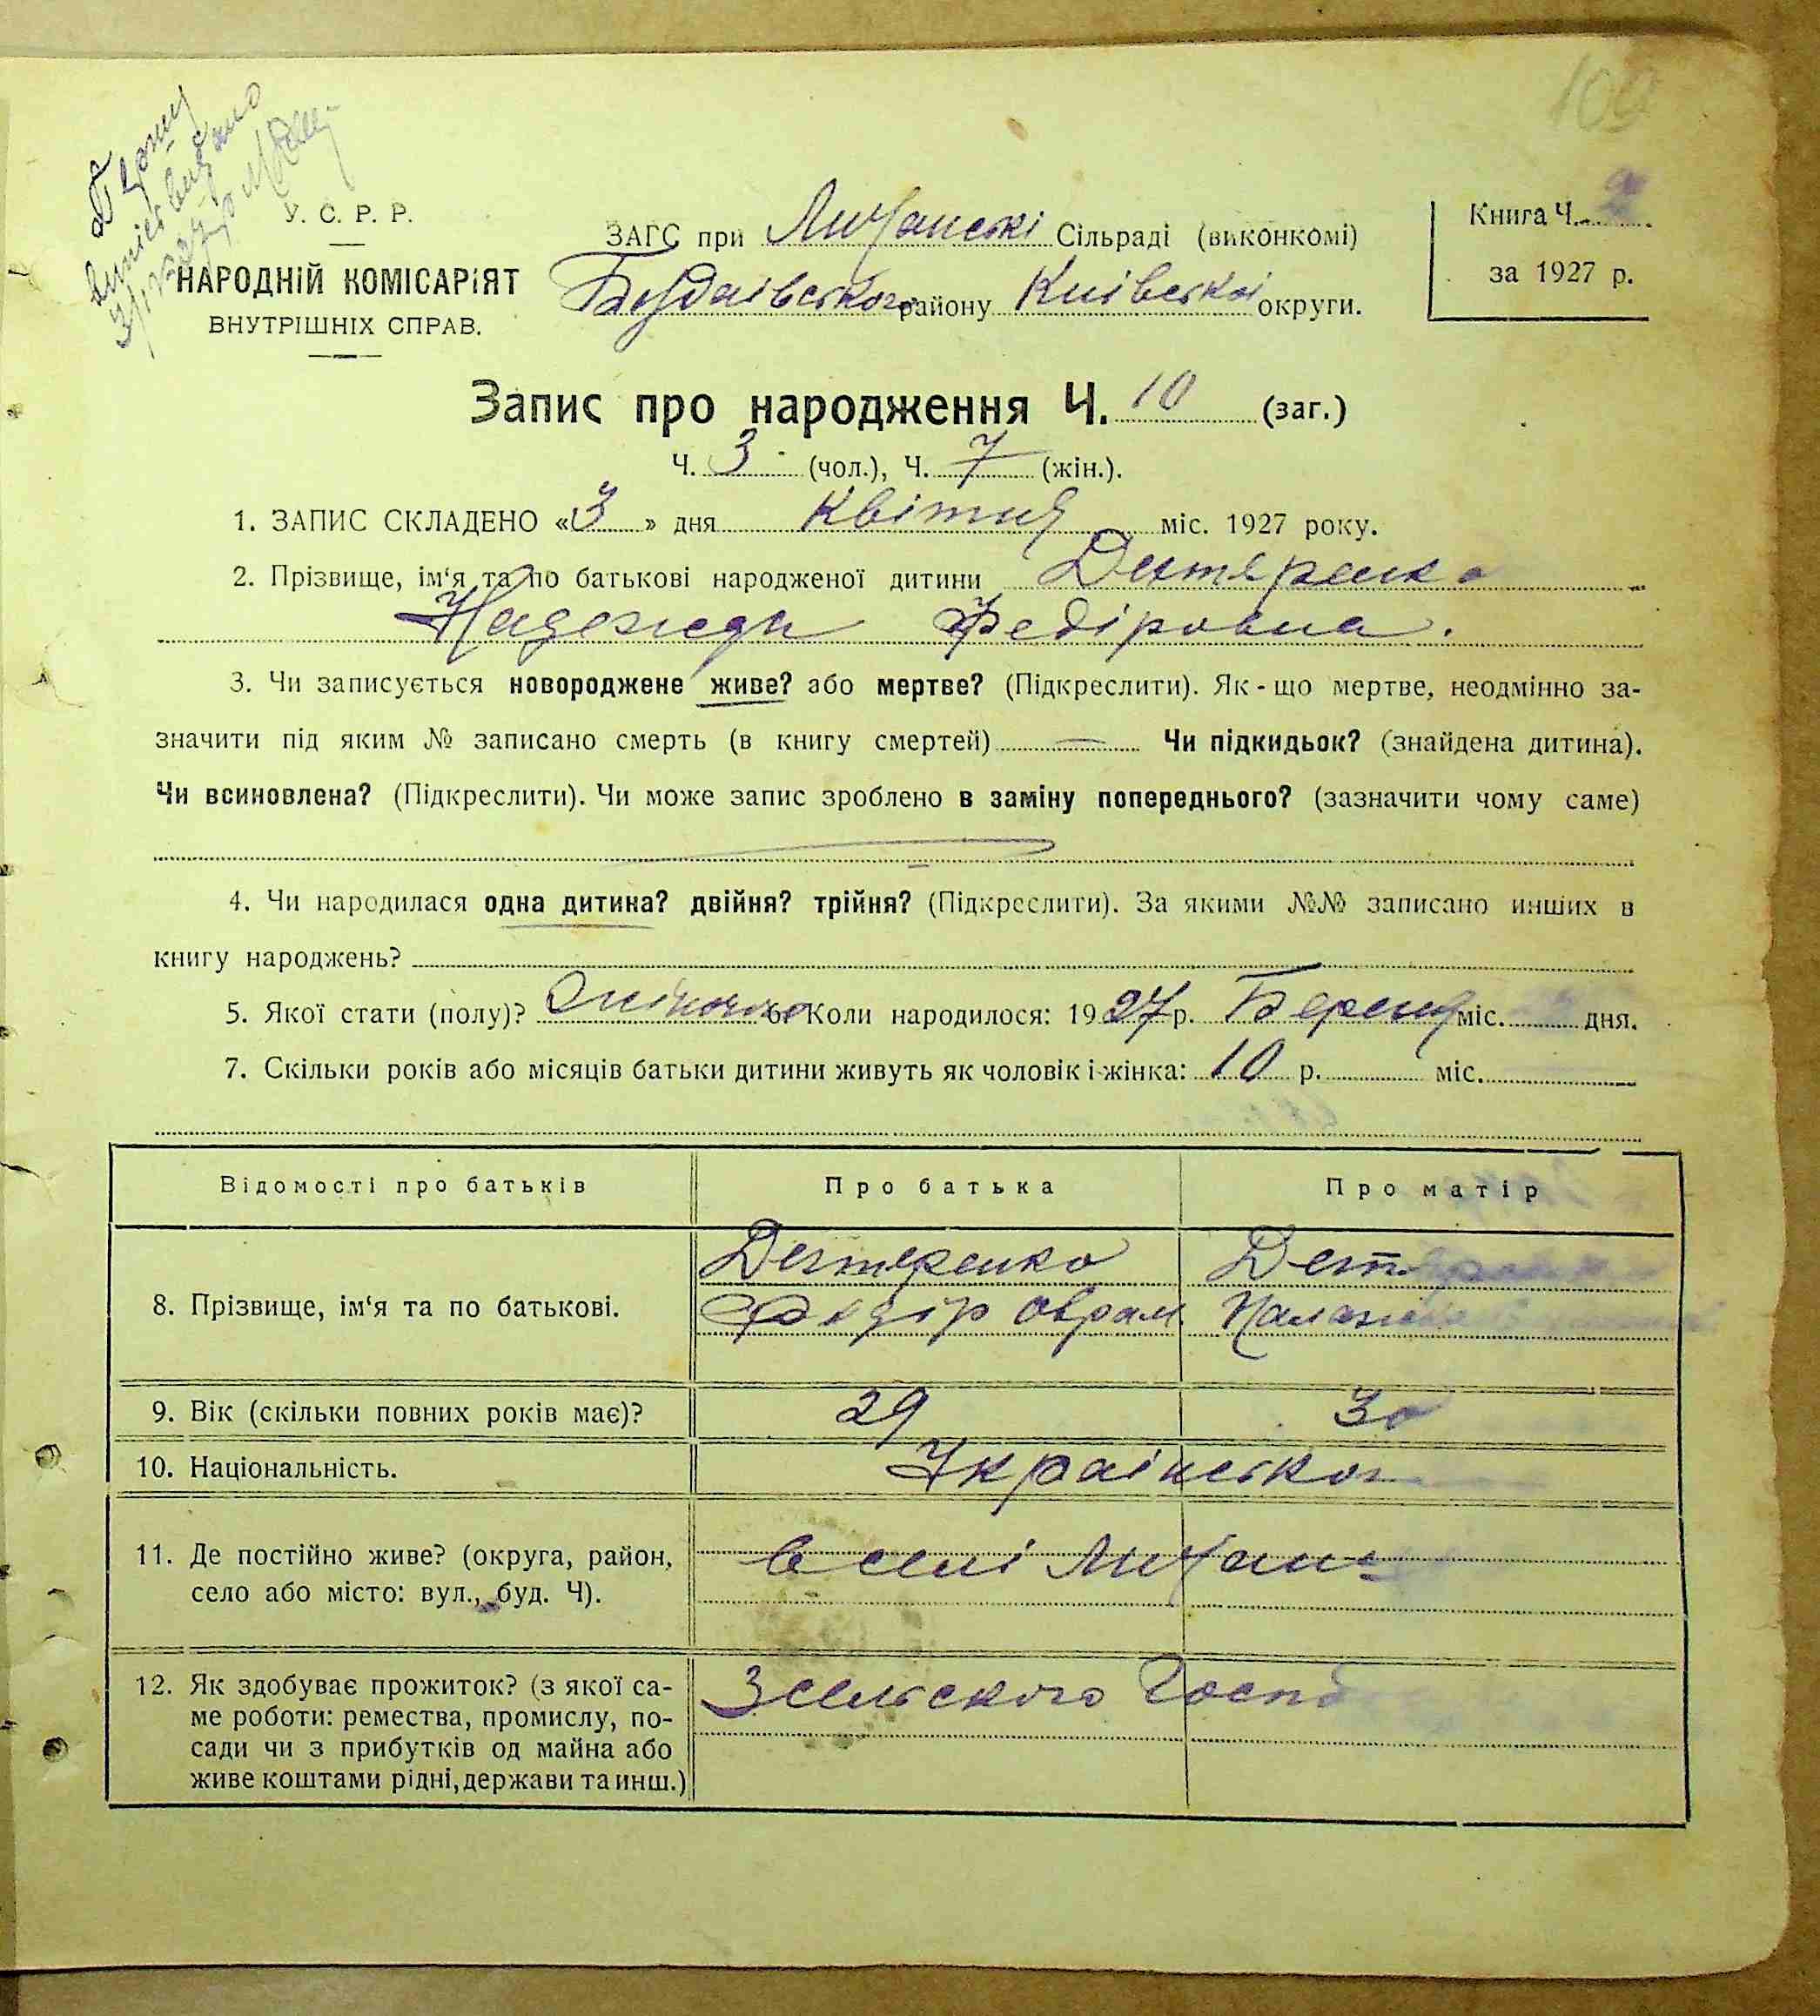 100
У. С. Р. Р.
НАРОДНІЙ КОМІСАРІЯТ
ВНУТРІШНІХ СПРАВ.
ЗАГС при Личанскі Сільраді (виконкомі)
району Київської округи.
Книга Ч. 2
за 1927 р.
Запис про народження Ч. 10 (заг.)
Ч. 3 (чол.), Ч. 7 (жін.).
1. ЗАПИС СКЛАДЕНО «3» дня Квітня міс. 1927 року.
2. Прізвище, ім'я та по батькові народженої дитини
Федіровна.
3. Чи записується новороджене живе? або мертве? (Підкреслити). Як-що мертве, неодмінно за-
значити під яким № записано смерть (в книгу смертей) — Чи підкидьок? (знайдена дитина).
Чи всиновлена? (Підкреслити). Чи може запис зроблено в заміну попереднього? (зазначити чому саме)
4. Чи народилася одна дитина? двійня? трійня? (Підкреслити). За якими №№ записано инших в
книгу народжень?
5. Якої стати (полу)? 6. Коли народилося: 1927 р. міс. дня.
7. Скільки років або місяців батьки дитини живуть як чоловік і жінка: 10 р. міс.
Відомості про батьків
Про батька
Про матір
8. Прізвище, ім'я та по батькові.
Дехтяренко
Федір Оврам.
9. Вік (скільки повних років має)?
29
30
10. Національність.
Українська
11. Де постійно живе? (округа, район,
село або місто: вул., буд. Ч).
в селі
12. Як здобуває прожиток? (з якої са-
ме роботи: ремества, промислу, по-
сади чи з прибутків од майна або
живе коштами рідні, держави та инш.)
З сельского Госпо